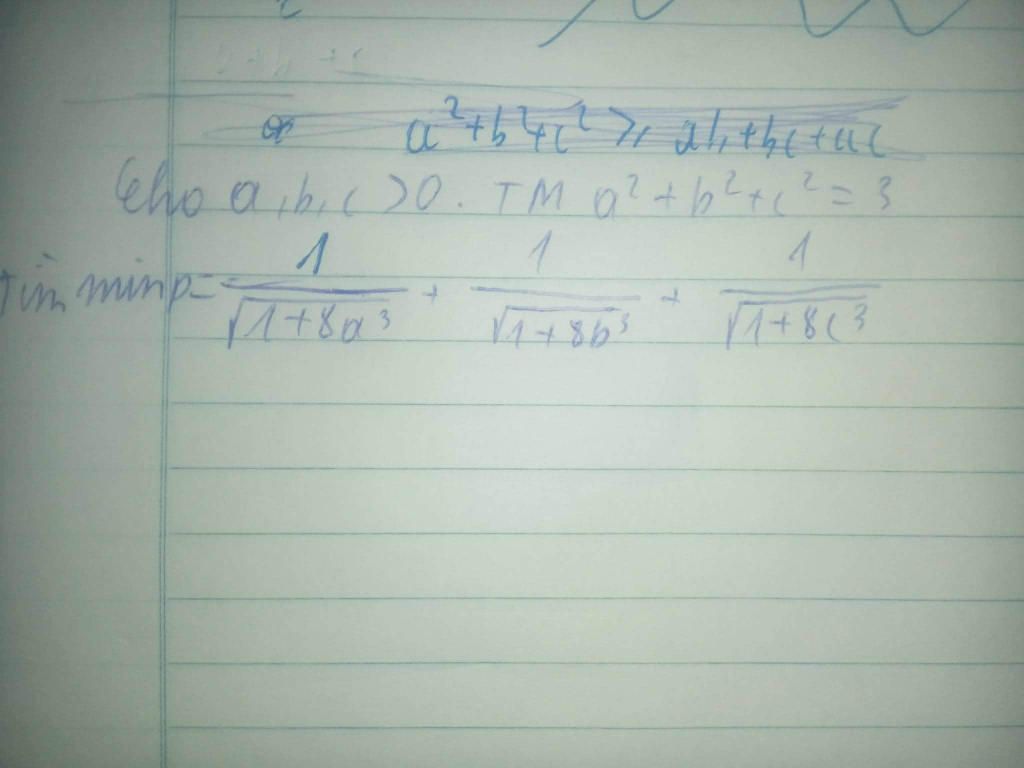 a²+b²+c² ≥ ab+bc+ac
Cho a,b,c >0. TM a²+b²+c² = 3
Tìm min P = 1/√(1+8a³) + 1/√(1+8b³) + 1/√(1+8c³)